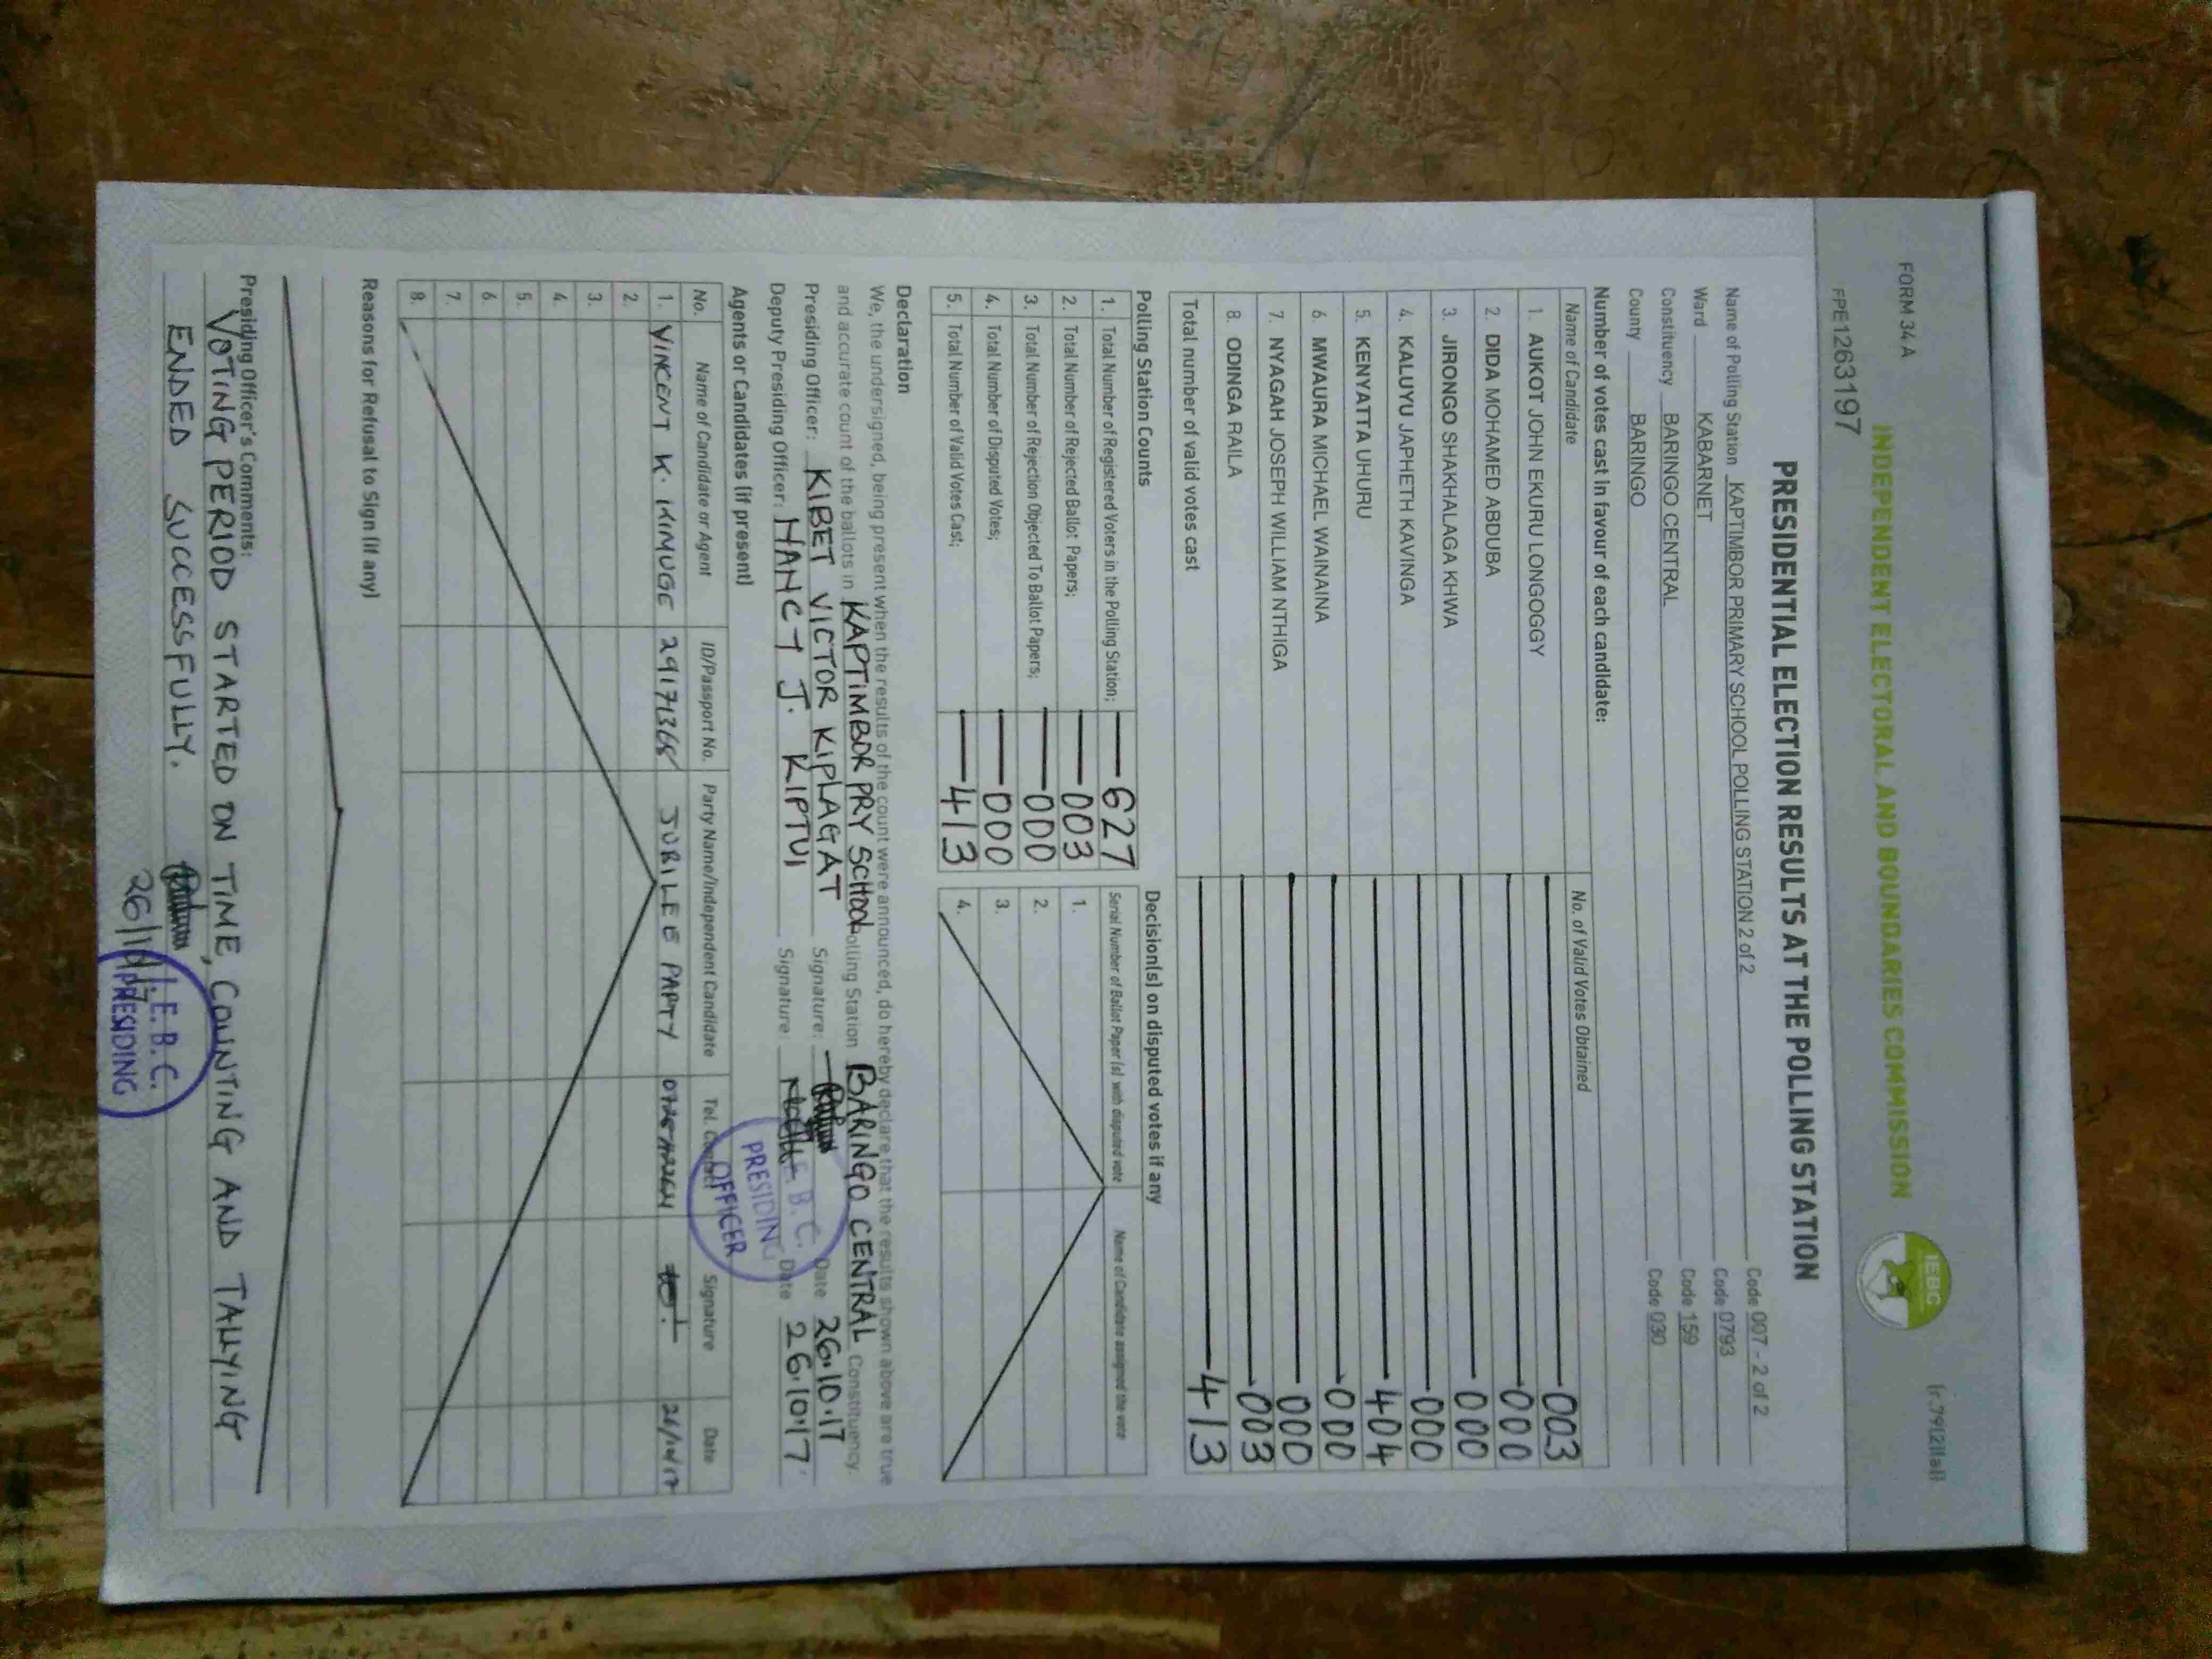 FORM 34 A
(r.79(2)(a))
INDEPENDENT ELECTORAL AND BOUNDARIES COMMISSION
IEBC
FPE1263197
PRESIDENTIAL ELECTION RESULTS AT THE POLLING STATION
Name of Polling Station KAPTIMBOR PRIMARY SCHOOL POLLING STATION 2 of 2 Code 007 - 2 of 2
Ward KABARNET Code 0793
Constituency BARINGO CENTRAL Code 159
County BARINGO Code 030
Number of votes cast in favour of each candidate:
Name of Candidate No. of Valid Votes Obtained
1. AUKOT JOHN EKURU LONGOGGY 003
2. DIDA MOHAMED ABDUBA 000
3. JIRONGO SHAKHALAGA KHWA 000
4. KALUYU JAPHETH KAVINGA 000
5. KENYATTA UHURU 404
6. MWAURA MICHAEL WAINAINA 000
7. NYAGAH JOSEPH WILLIAM NTHIGA 000
8. ODINGA RAILA 003
Total number of valid votes cast 413
Polling Station Counts
1. Total Number of Registered Voters in the Polling Station; 627
2. Total Number of Rejected Ballot Papers; 003
3. Total Number of Rejection Objected To Ballot Papers; 000
4. Total Number of Disputed Votes; 000
5. Total Number of Valid Votes Cast; 413
Decision(s) on disputed votes if any
Serial Number of Ballot Paper (s) with disputed vote Name of Candidate assigned the vote
1.
2.
3.
4.
Declaration
We, the undersigned, being present when the results of the count were announced, do hereby declare that the results shown above are true
and accurate count of the ballots in KAPTIMBOR PRY SCHOOL olling Station BARINGO CENTRAL Constituency.
Presiding Officer: KIBET VICTOR KIPLAGAT Signature: Date 26.10.17
Deputy Presiding Officer: NANCY J. KIPTUI Signature: Date 26.10.17
E. B. C.
PRESIDING
OFFICER
Agents or Candidates (if present)
No. Name of Candidate or Agent ID/Passport No. Party Name/Independent Candidate Tel. Contact Signature Date
1. VINCENT K. KIMUGE JUBILEE PARTY 26/10/17
2.
3.
4.
5.
6.
7.
8.
Reasons for Refusal to Sign (if any)
Presiding Officer's Comments:
VOTING PERIOD STARTED ON TIME, COUNTING AND TALLYING
ENDED SUCCESSFULLY.
26/10/17
I.E.B.C.
PRESIDING